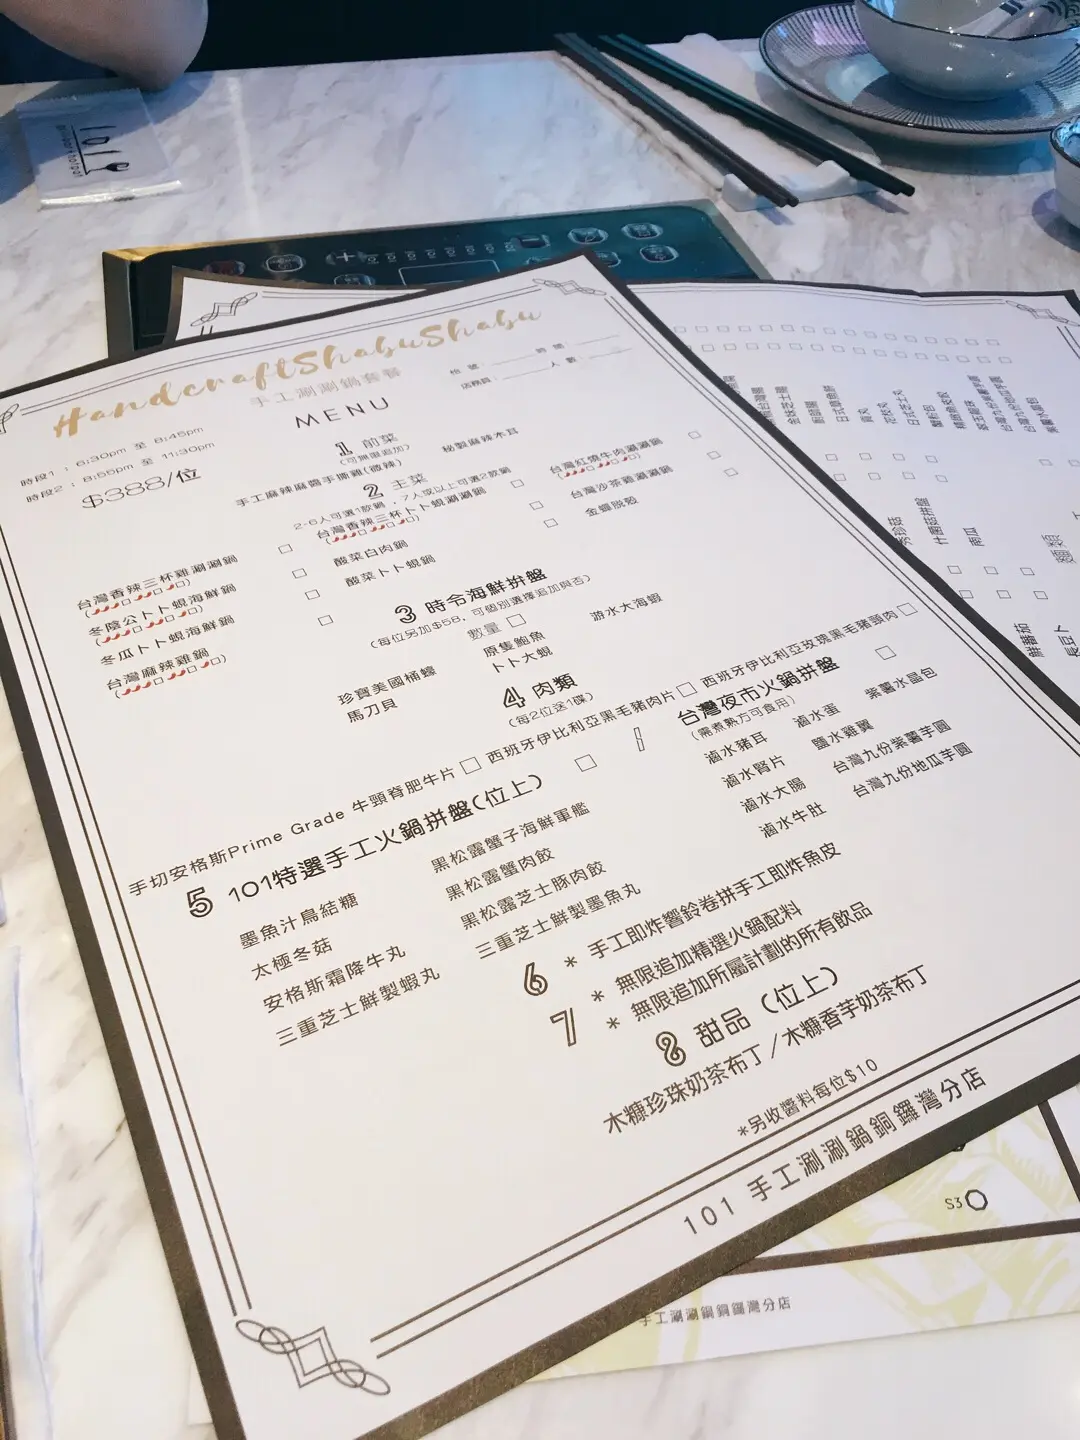 HandcraftShabuShabu
手工涮涮鍋套餐
MENU
時段1 : 6:30pm 至 8:45pm
時段2 : 8:55pm 至 11:30pm
$388/位
店務員: 人 數:
1 前菜
(可無限追加)
手工麻辣麻醬手撕雞(微辣) 秘製麻辣木耳
2 主菜
2-6人可選1款鍋，7人或以上可選2款鍋
台灣香辣三杯雞涮涮鍋
冬陰公卜卜蜆海鮮鍋
冬瓜卜卜蜆海鮮鍋
台灣麻辣雞鍋
台灣香辣三杯卜卜蜆涮涮鍋
酸菜白肉鍋
酸菜卜卜蜆鍋
台灣紅燒牛肉涮涮鍋
台灣沙茶雞涮涮鍋
金蟬脱殼
3 時令海鮮拼盤
(每位另加$58, 可個別選擇追加與否)
數量
珍寶美國桶蠔
馬刀貝
原隻鮑魚
卜卜大蜆
游水大海蝦
4 肉類
(每2位送1碟)
手切安格斯Prime Grade 牛頸脊肥牛片 西班牙伊比利亞黑毛豬肉片 西班牙伊比利亞玫瑰黑毛豬頸肉
5 101特選手工火鍋拼盤(位上)
墨魚汁鳥結糖
太極冬菇
安格斯霜降牛丸
三重芝士鮮製蝦丸
黑松露蟹子海鮮軍艦
黑松露蟹肉餃
黑松露芝士豚肉餃
三重芝士鮮製墨魚丸
台灣夜市火鍋拼盤
(需煮熟方可食用)
滷水豬耳
滷水腎片
滷水大腸
滷水牛肚
滷水蛋
鹽水雞翼
台灣九份紫薯芋圓
台灣九份地瓜芋圓
紫薯水晶包
6 * 手工即炸響鈴卷拼手工即炸魚皮
7 * 無限追加精選火鍋配料
* 無限追加所屬計劃的所有飲品
8 甜品 (位上)
木糠珍珠奶茶布丁/木糠香芋奶茶布丁
*另收醬料每位$10
101 手工涮涮鍋銅鑼灣分店
S3
手工涮涮鍋銅鑼灣分店
101
南瓜